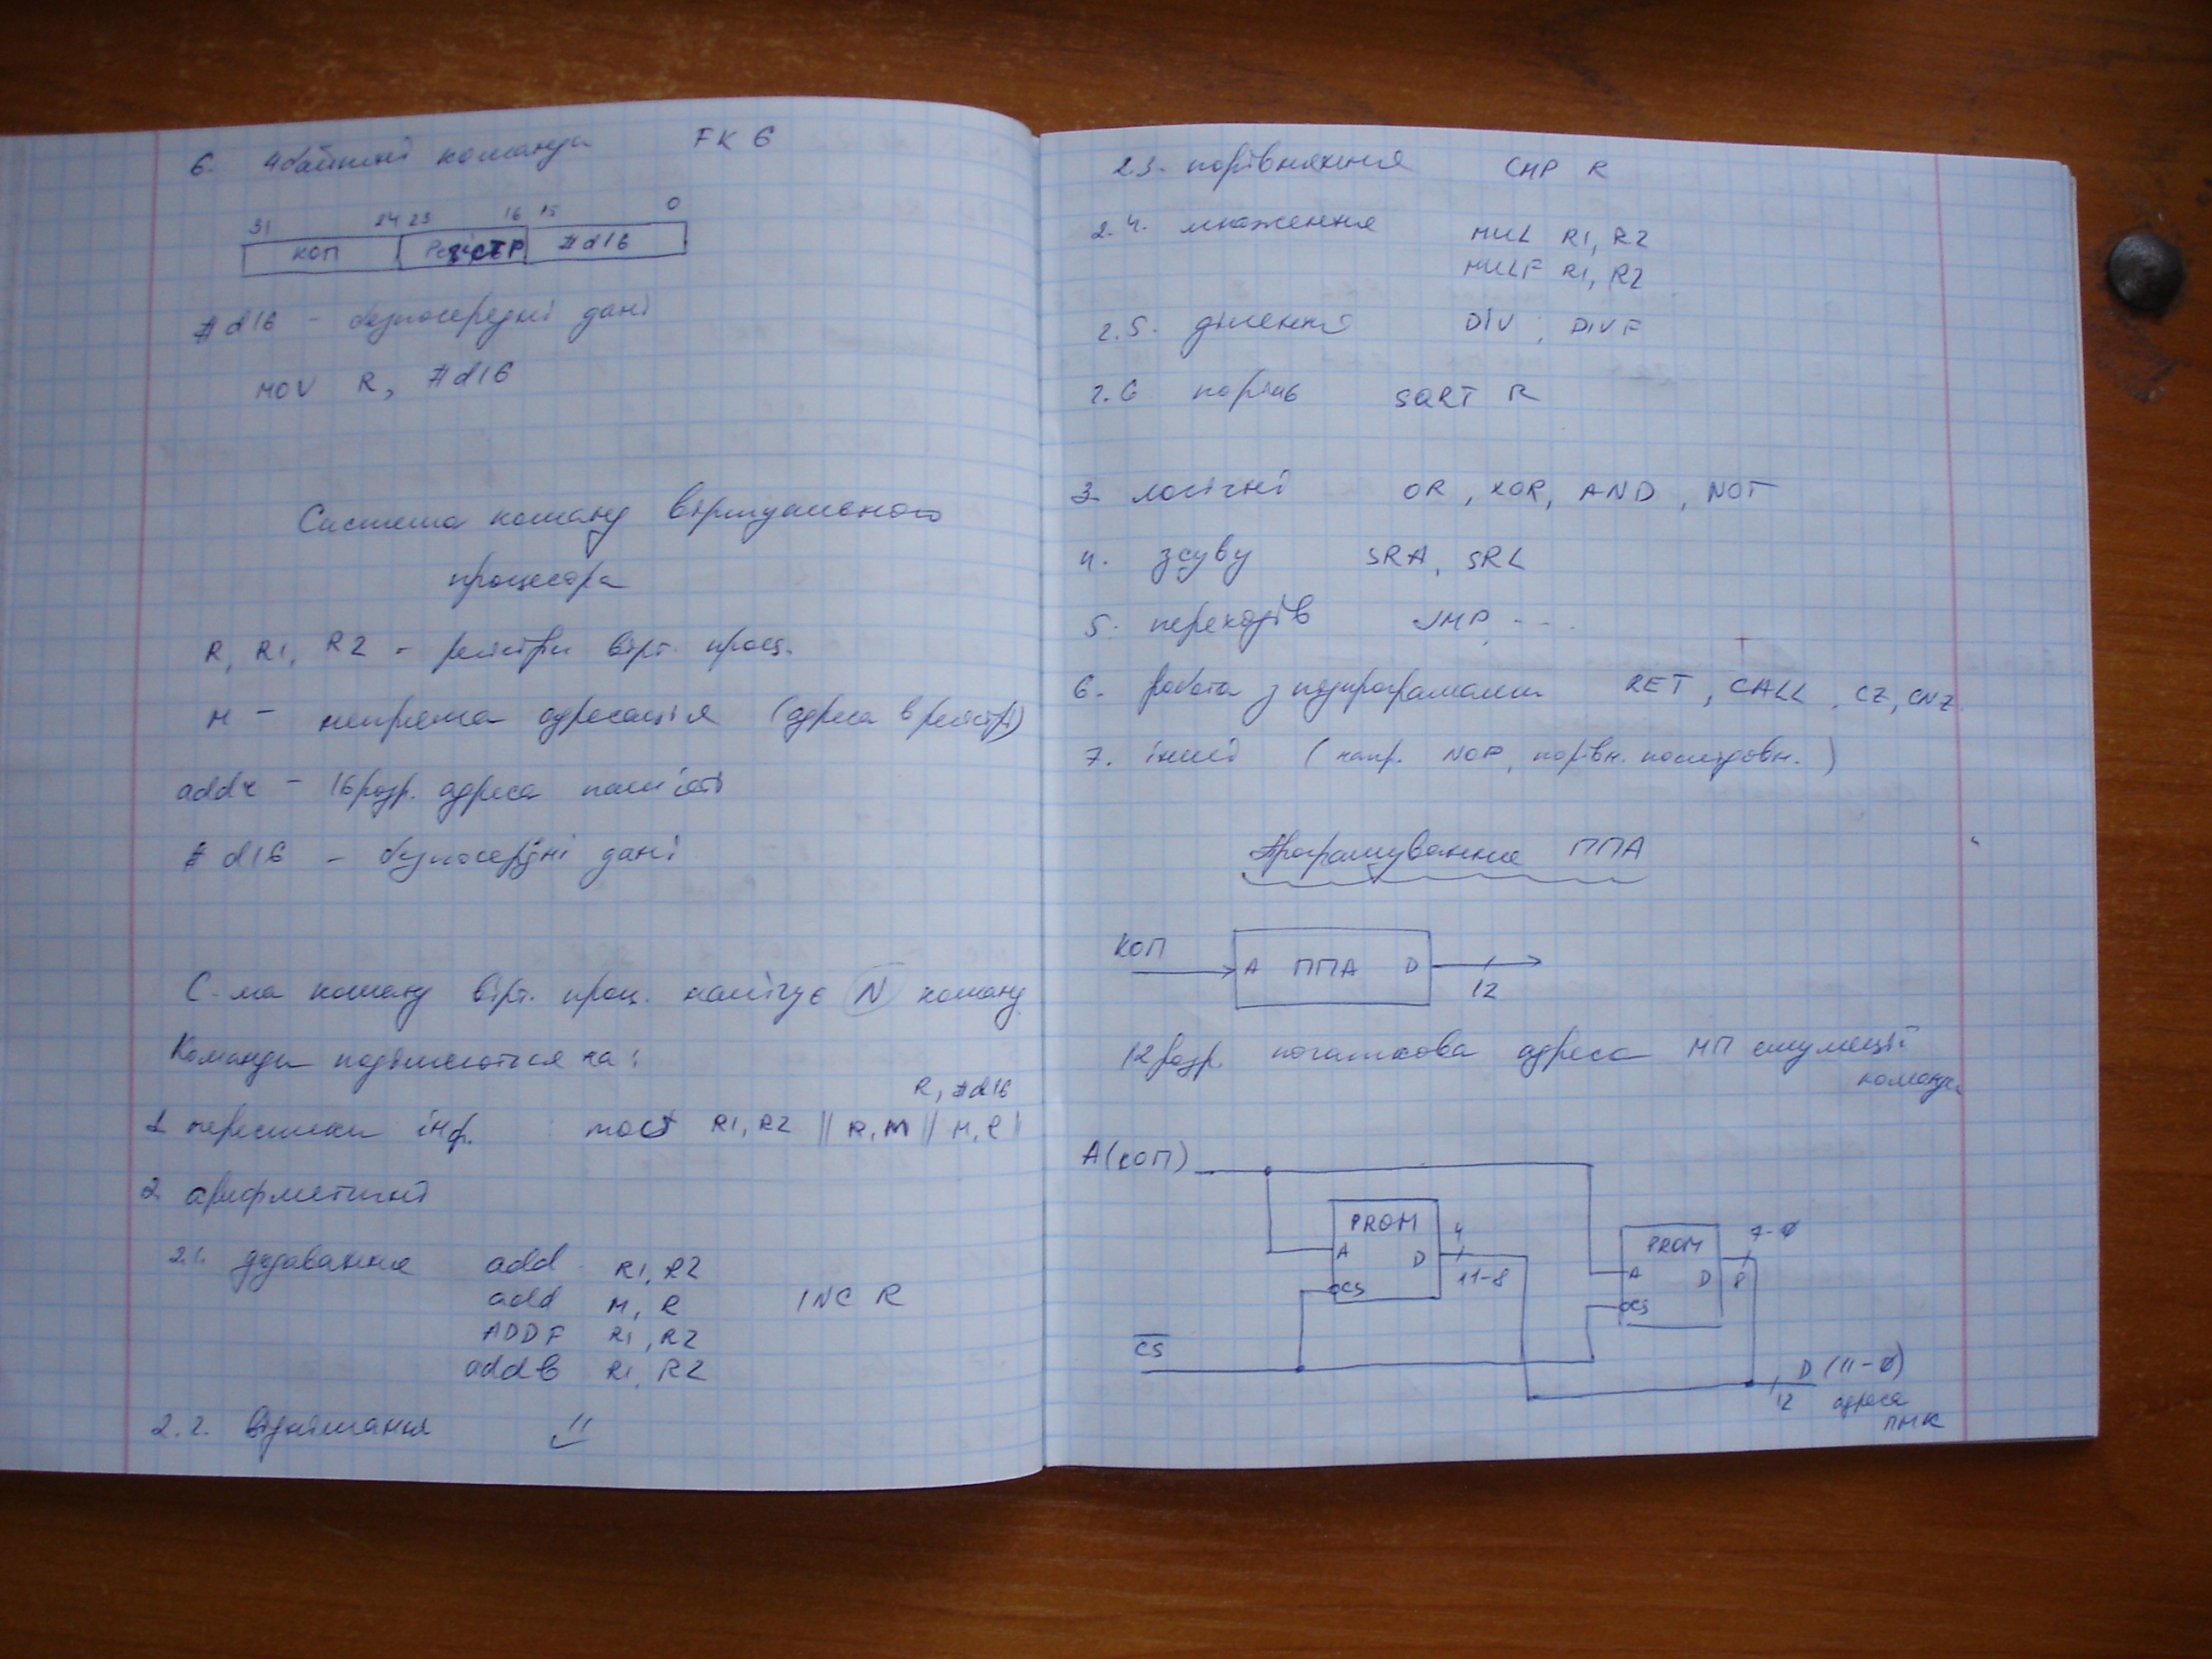 6. 4байтні команди FK 6
31 24 23 16 15 0
КОП Регістр #d16
#d16 - безпосередні дані
MOV R, #d16
Система команд віртуального
процесора
R, R1, R2 - регістри вірт. проц.
M - непряма адресація (адреса в регістрі)
addr - 16розр. адреса пам'яті
#d16 - безпосередні дані
С-ма команд вірт. проц. налічує N команд
Команди поділяються на:
R, #d16
1. пересилки інф. : R1, R2 || R, M || M, R
2. арифметичні
2.1. додавання add R1, R2
add M, R INC R
ADDF R1, R2
addb R1, R2
2.2. віднімання //
2.3. порівняння CMP R
2.4. множення MUL R1, R2
MULF R1, R2
2.5. ділення DIV, DIVF
2.6 корінь SQRT R
3. логічні OR, XOR, AND, NOT
4. зсуву SRA, SRL
5. переходів JMP, ...
6. робота з підпрограмами RET, CALL, CZ, CNZ
7. інші (напр. NOP, порівн. послідовн.)
Програмування ППА
КОП A ППА D
12
12розр. початкова адреса МП емуляції
команди
A(КОП)
PROM 4 7-0
A D PROM
11-8 A D 8
CS CS
CS
D (11-0)
12 адреса
ПМК